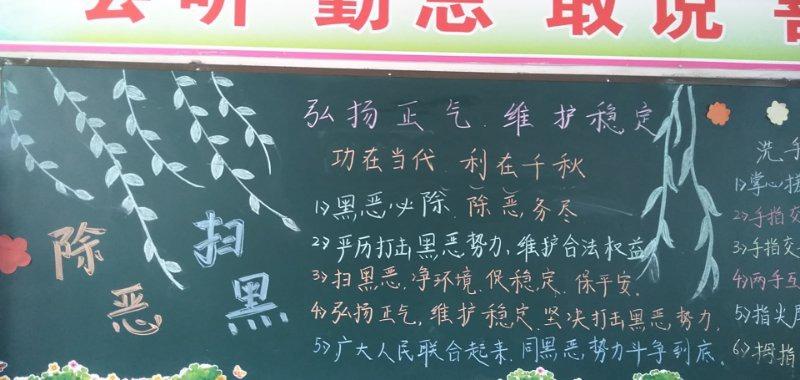 会听 勤思 敢说 善
弘扬正气.维护稳定
功在当代 利在千秋
除恶
扫黑
1>黑恶必除.除恶务尽
2>严历打击黑恶势力,维护合法权益
3>扫黑恶,净环境.促稳定.保平安.
4>弘扬正气,维护稳定.坚决打击黑恶势力.
5>广大人民联合起来.同黑恶势力斗争到底.
洗手
1>掌心搓
2>手指交
3>手指交
4>两手互
5>指尖
6>拇指